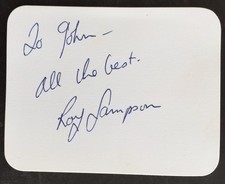 To John -
All the best.
Roy Sampson